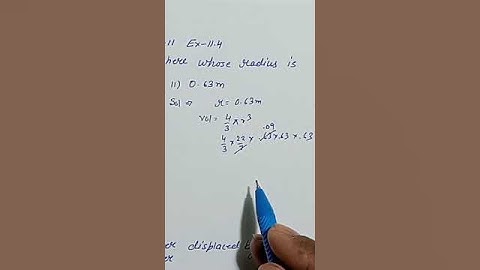 11 Ex-11.4
here whose radius is
11) 0.63m
Sol ⇒ r = 0.63m
Vol = 4/3 π r³
.09
4/3 × 22/7 × .63 × .63 × .63
er displaced
er